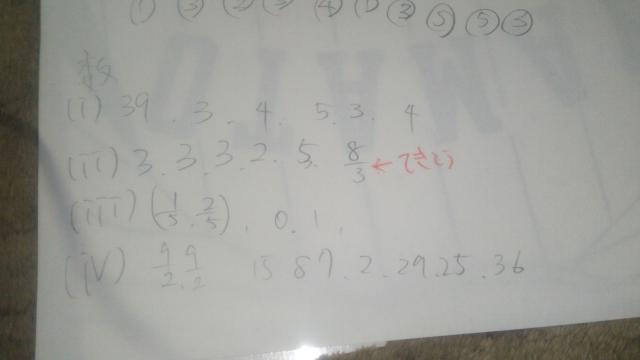 ① ③ ② ③ ④ ① ③ ⑤ ⑤ ③
数
(i) 39 . 3 . 4 . 5.3 . 4
(ii) 3 . 3 . 3 . 2 . 5 . 8/3 ← てきとう
(iii) (1/5 . 2/5) . 0.1 .
(iv) 9/2 . 9/2 15 87 . 2 . 29.25 . 36